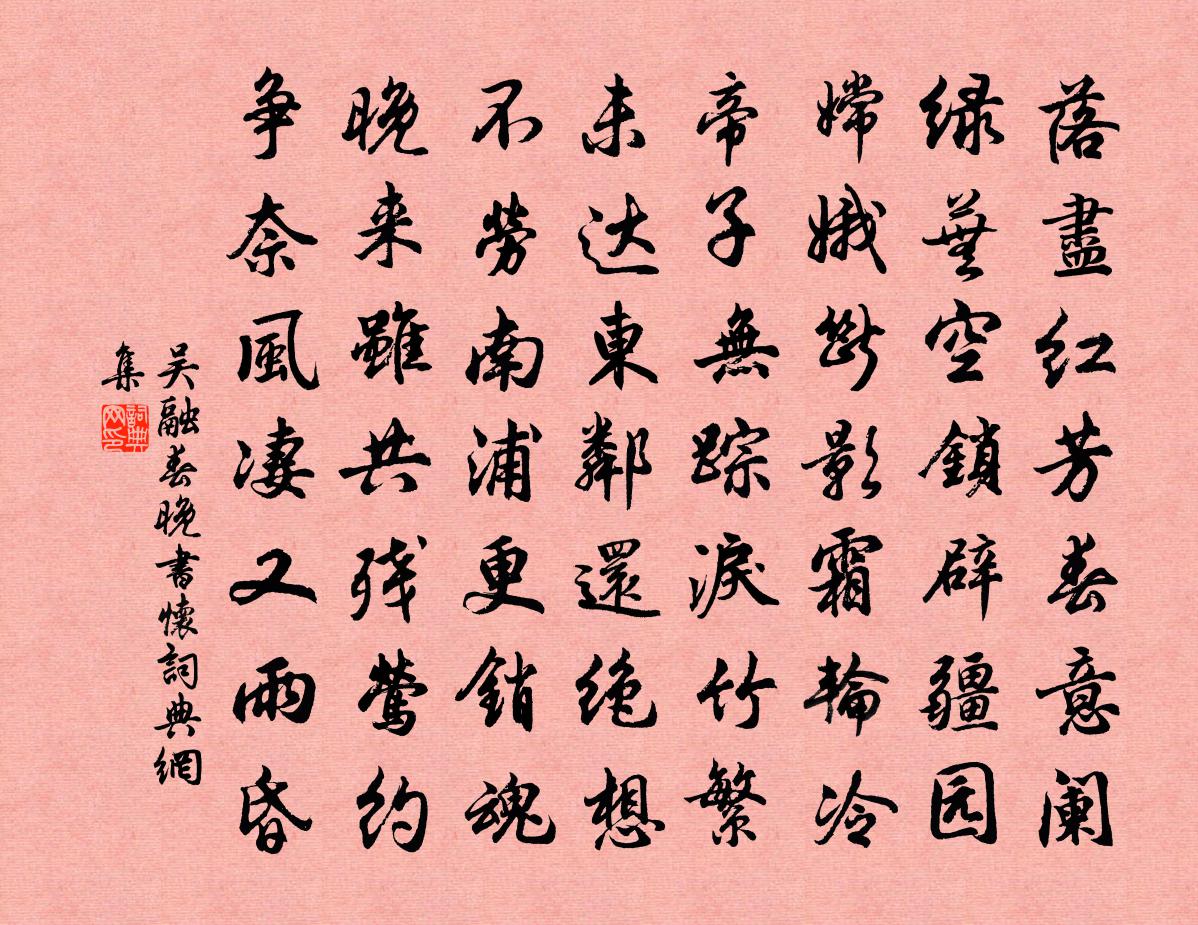 落盡红芳春意阑
绿蕪空鎖辟疆园
嫦娥断影霜輪冷
帝子無踪淚竹繁
未达東鄰還绝想
不勞南浦更銷魂
晚来雖共残鶯约
争奈風凄又雨昏
吴融春晚書懷詞典網
集
詞典网印